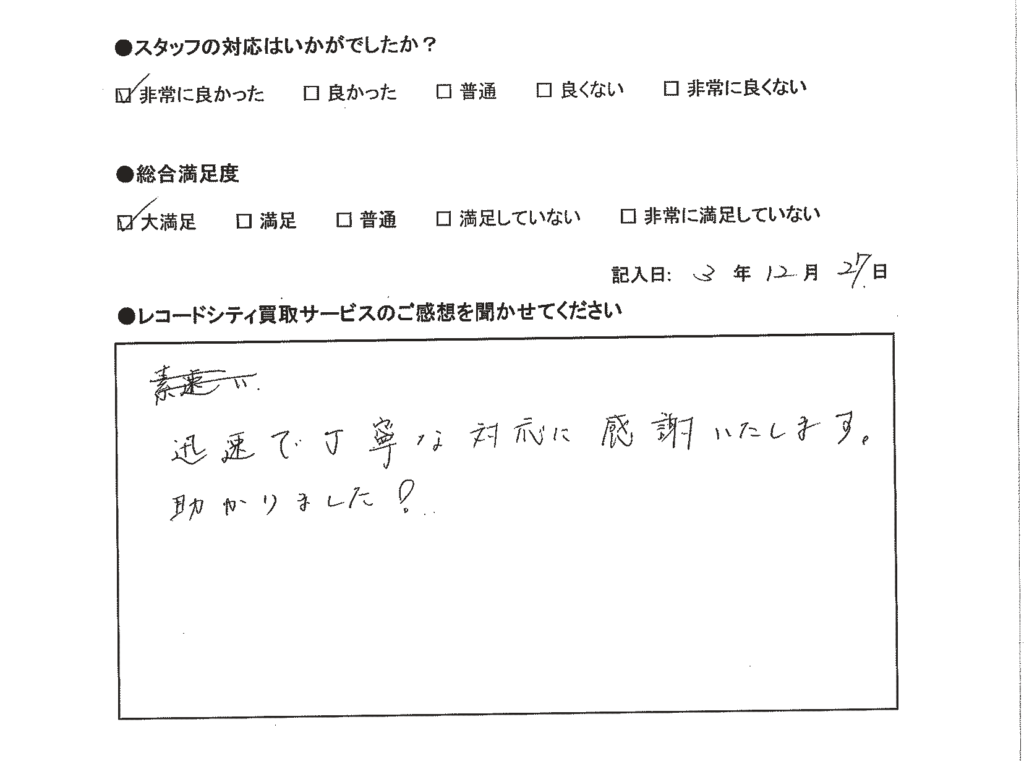 ●スタッフの対応はいかがでしたか？
☑ 非常に良かった □ 良かった □ 普通 □ 良くない □ 非常に良くない
●総合満足度
☑ 大満足 □ 満足 □ 普通 □ 満足していない □ 非常に満足していない
記入日: 3 年 12 月 27 日
●レコードシティ買取サービスのご感想を聞かせてください
素速い
迅速で丁寧な対応に感謝いたします。
助かりました!